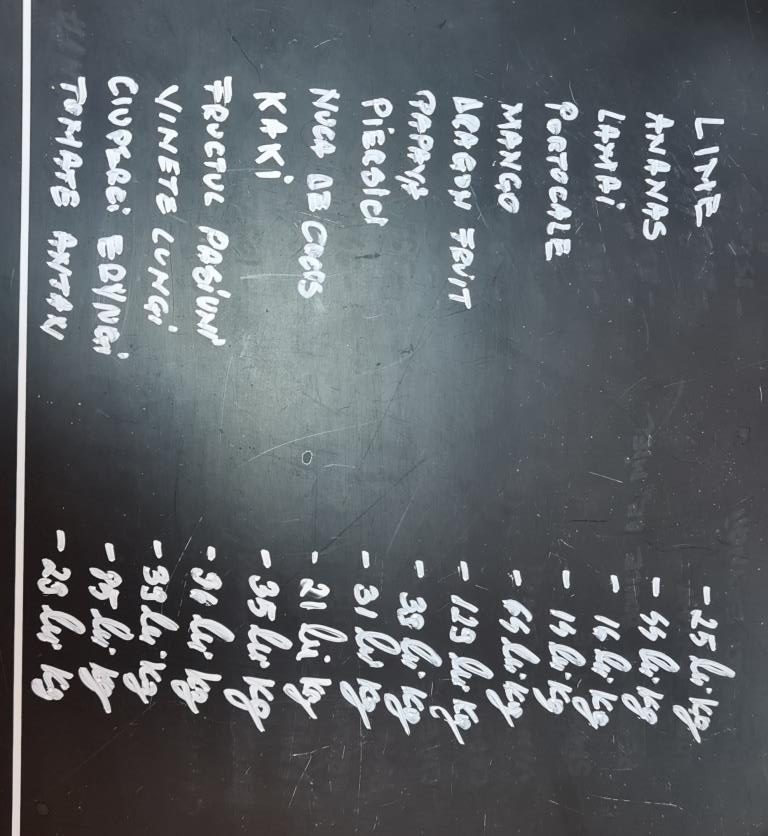 LIME - 25 lei kg
ANANAS - 44 lei kg
LAMAI - 16 lei kg
PORTOCALE - 14 lei kg
MANGO - 64 lei kg
DRAGON FRUIT - 129 lei kg
PAPAYA - 39 lei kg
PIERSICI - 31 lei kg
NUCA DE COCOS - 21 lei kg
KAKI - 35 lei kg
FRUCTUL PASIUNI - 91 lei kg
VINETE LUNGI - 39 lei kg
CIUPERCI ERYNGI - 95 lei kg
TOMATE ANTAKI - 29 lei kg